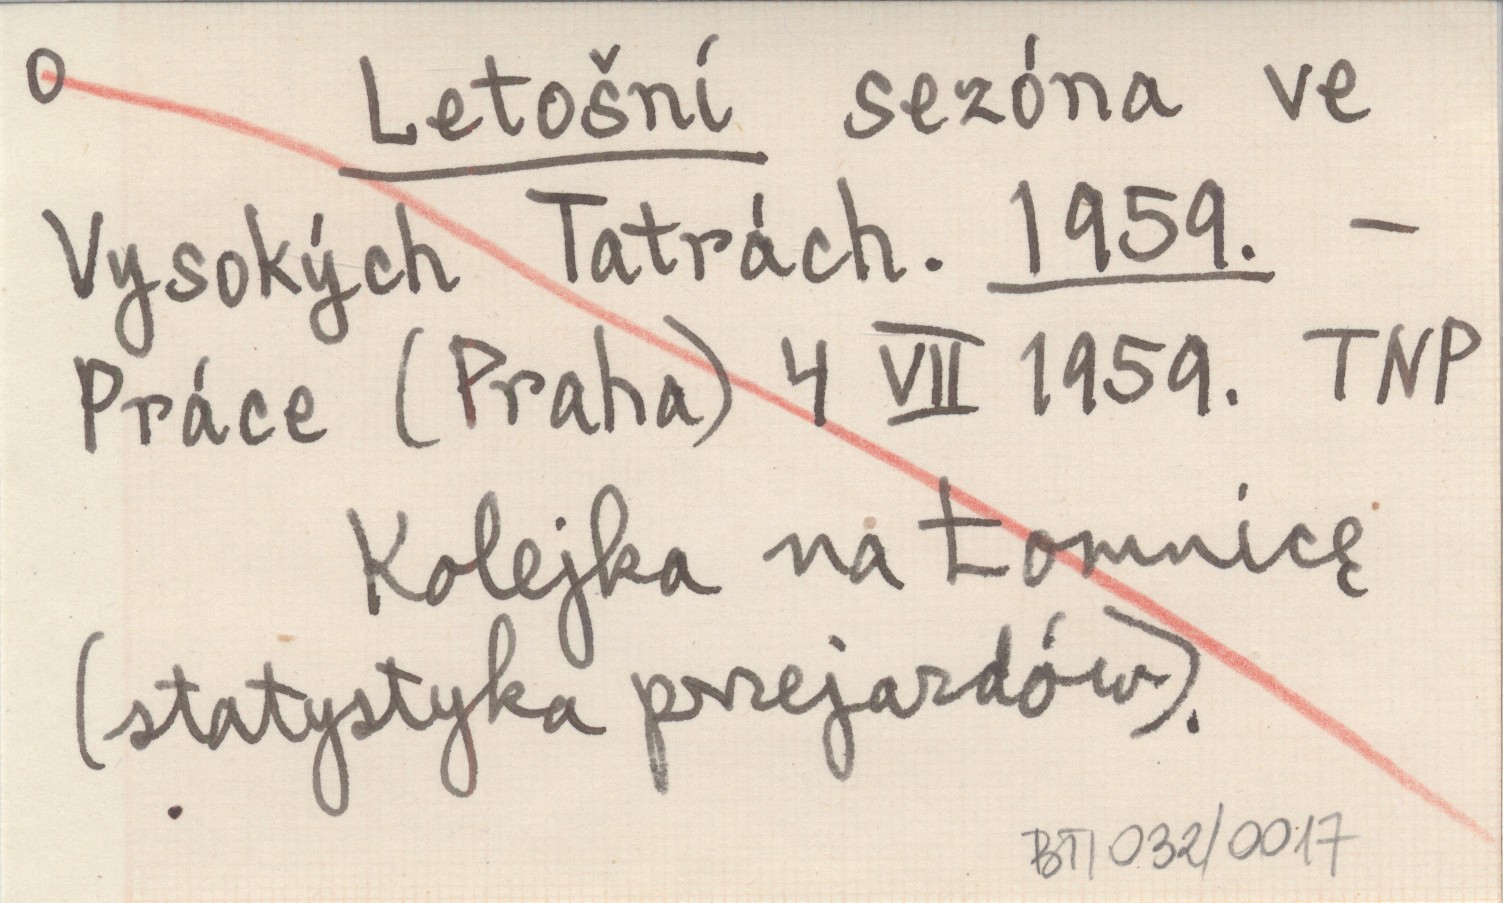 O Letošní sezóna ve
Vysokých Tatrách. 1959. –
Práce (Praha) 4 VII 1959. TNP
Kolejka na Łomnicę
(statystyka przejazdów).
BT/032/0017